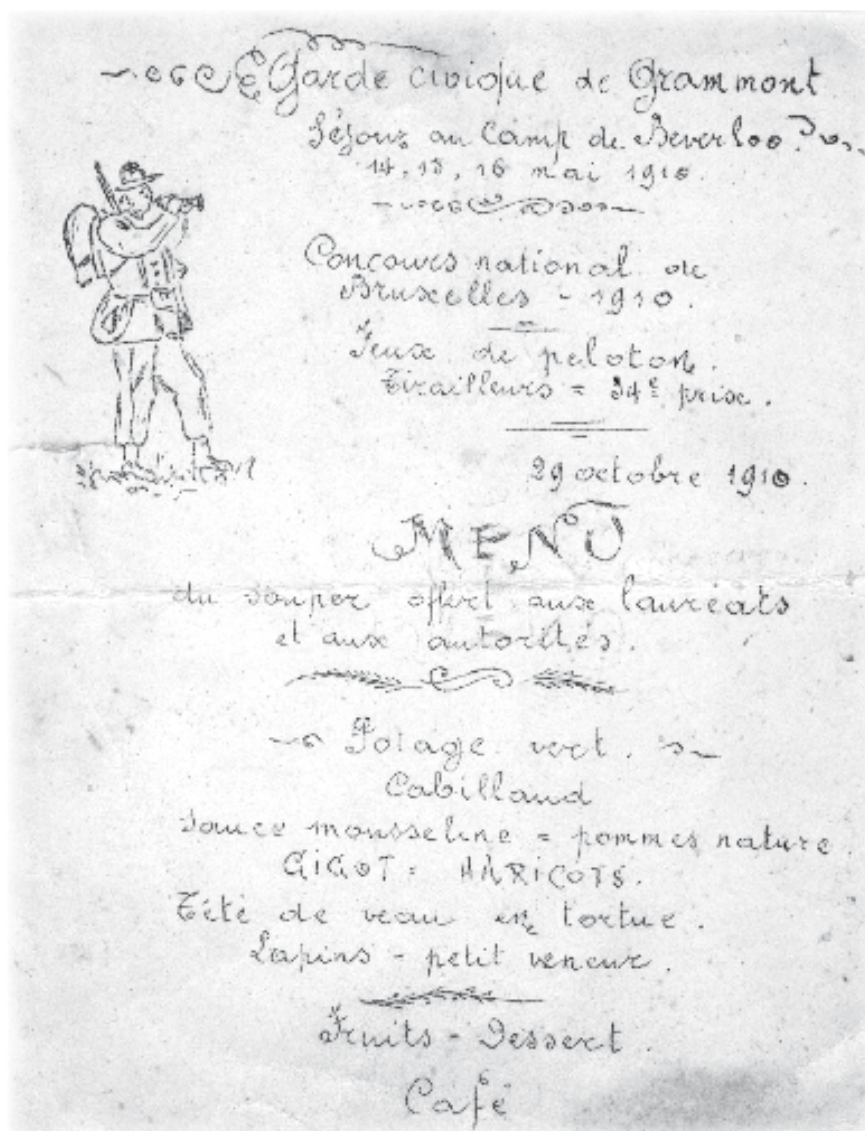 Garde civique de Grammont
Séjour au Camp de Beverloo.
14, 15, 16 mai 1910.
Concours national de
Bruxelles - 1910.
Feux de peloton.
Tirailleurs = 34e prix.
29 octobre 1910.
MENU
du souper offert aux lauréats
et aux autorités.
Potage vert.
Cabillaud
Sauce mousseline = pommes nature
GIGOT = HARICOTS.
Tête de veau en tortue.
Lapins - petit veneur.
Fruits - Dessert
Café